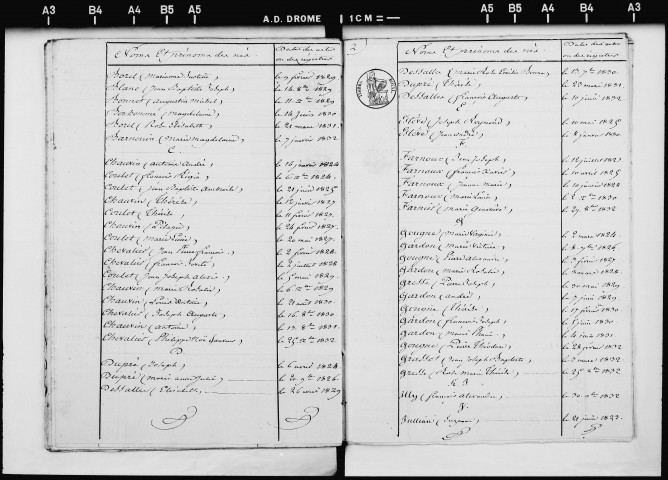 A3 B4 A4 B5 A5 A.D. DROME 1CM A5 B5 A4 B4 A3
Noms Et prénoms des nés. Dates des actes ou des registres
Borel (marianne Justine) le 9 février 1829.
Blanc (Jean Baptiste Joseph) le 14 8bre 1829
Bonnet (augustin michel) le 11 1829
Bonhomme (magdelaine) le 14 Juin 1830
Borel (Rose Elisabeth) le 21 mars 1831.
Barnouin (marie magdelaine) le 7 janvier 1832
C
Chauvin (antoine andré) le 16 janvier 1824
Coulet (françois Régis) le 6 1824.
Coulet (Jean Baptiste) le 21 juin 1825
Chauvin (Thérèse) le 12 janvier 1827
Coulet (Thérèse) le 11 février 1827.
Chauvin le 24 février 1827.
Coulet (marie Louise) le 20 mai 1827.
Chevalier (Jean Pierre françois) le 2 février 1828.
Chevalier (françois) le 2 juillet 1828
Coulet (Jean Joseph alexis) le 5 mai 1829.
Chauvin (marie Rosalie) le 6 1829
Chauvin (Louis antoine) le 21 août 1830.
Chevalier (Joseph Auguste) le 16 8bre 1830
Chauvin (antoine) le 13 8bre 1831.
Chevalier (Philippe) le 25 1832
D
Dupré (Joseph) le 6 avril 1824.
Dupré (marie anne Julie) le 20 9bre 1826.
Dessalles (Elisabeth) le 26 avril 1829
2
Noms Et prénoms des nés. Dates des actes ou des registres
Dessalles (marie Rose) le 13 7bre 1830.
Dupré (Thérèse) le 23 mars 1831.
Dessalles (françois Auguste) le 10 juin 1832
E
(Joseph Raymond) le 10 mai 1825
le 8 janvier 1830.
F
Farnoux (Jean Joseph) le 12 juillet 1823.
Farnoux (françois Xavier) le 10 avril 1825
Farnoux (Jeanne marie) le 10 janvier 1828
Farnoux (marie Louise) le 2 1830
Farnier (marie) le 29 8bre 1832
G
Gougne (marie Virginie) le 2 mars 1824.
Gardon (marie Victoire) le 8 7bre 1826
Gougne (Pierre alexandre) le 2 février 1827.
Gardon (marie Rosalie) le 3 avril 1828
Gresse (Pierre Joseph) le 30 mai 1829
Gardon (andré) le 7 juin 1829
(Thérèse) le 17 février 1830
Gardon (françois Joseph) le 5 juin 1830.
Gardon (marie) le 4 mai 1831
Gougne (Pierre Théodore) le 28 février 1832
(Jean Joseph Baptiste) le 2 mars 1832
Gresse (Rose marie Thérèse) le 25 1832
H. I.
Illy (françois alexandre) le 30 9bre 1832
J.
Jullian (Suzanne) le 21 juin 1823.